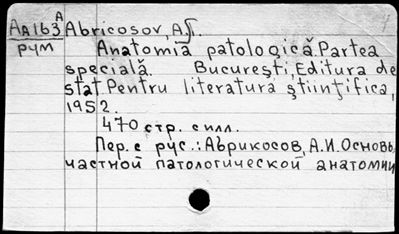 Aa163 A Abricosov, A.I.
рум Anatomia patologică. Partea
specială. Bucureşti, Editura de
stat. Pentru literatura ştiinţifica,
1952.
470 стр. с илл.
Пер. с рус.: Абрикосов, А.И. Основы
частной патологической анатомии